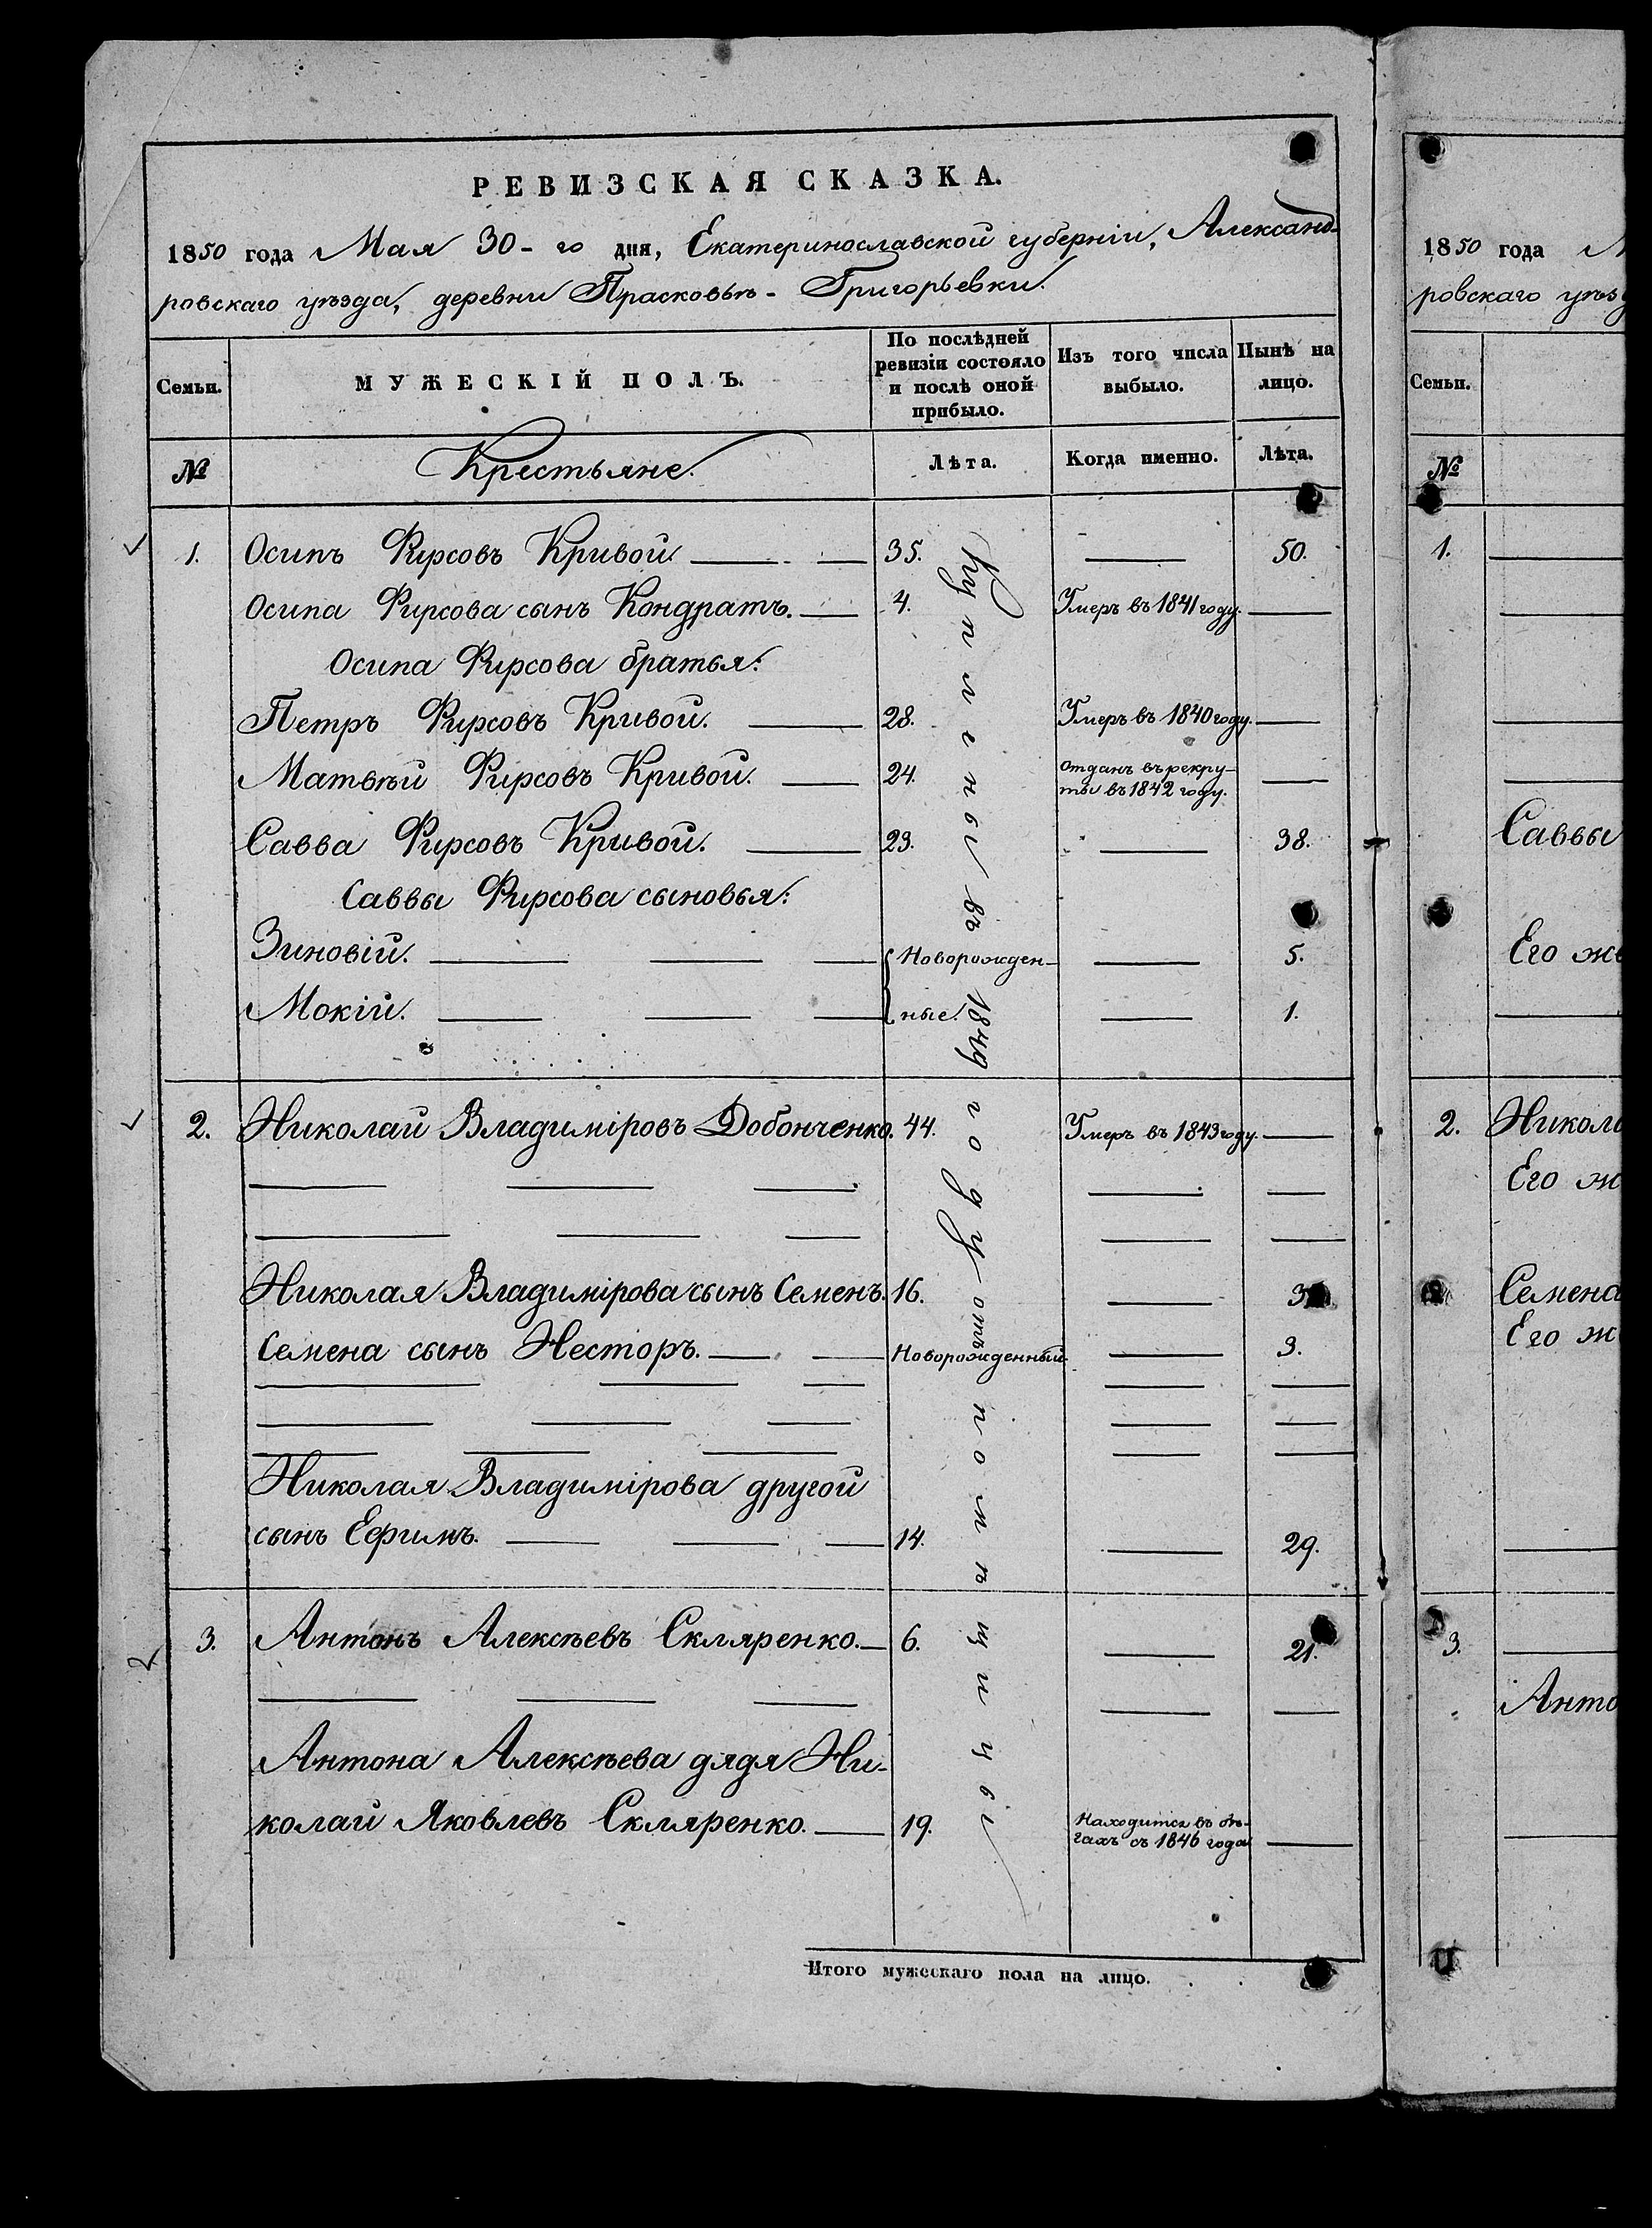 РЕВИЗСКАЯ СКАЗКА.
1850 года Мая 30-го дня, Екатеринославской губерніи, Александ-
ровскаго уѣзда, деревни Прасковьѣ-Григорьевки.
Семьи.
МУЖЕСКІЙ ПОЛЪ.
По послѣдней
ревизіи состояло
и послѣ оной
прибыло.
Изъ того числа
выбыло.
Нынѣ на
лицо.
№ Крестьяне. Лѣта. Когда именно. Лѣта.
1. Осипъ Фирсовъ Кривой. 35. 50.
Осипа Фирсова сынъ Кондратъ. 4. Умеръ въ 1841 году.
Осипа Фирсова братья:
Петръ Фирсовъ Кривой. 28. Умеръ въ 1840 году.
Матвѣй Фирсовъ Кривой. 24. Отданъ въ рекру-
ты въ 1842 году.
Савва Фирсовъ Кривой. 23. 38.
Саввы Фирсова сыновья:
Зиновій. Новорожден- 5.
Мокій. ные. 1.
2. Николай Владиміровъ Добонченко. 44. Умеръ въ 1843 году.
Николая Владимірова сынъ Семенъ. 16.
Семена сынъ Несторъ. Новорожденный. 3.
Николая Владимірова другой
сынъ Ефимъ. 14. 29.
3. Антонъ Алексѣевъ Скляренко. 6. 21.
Антона Алексѣева дядя Ни-
колай Яковлевъ Скляренко. 19. Находится въ бѣ-
гахъ съ 1846 года
Купленны въ 1849 году отъ помѣщицы
Итого мужескаго пола на лицо.
1850 года
ровскаго
Семьи.
№
1.
Саввы
Его
2.
Его
Семена
Его
3.